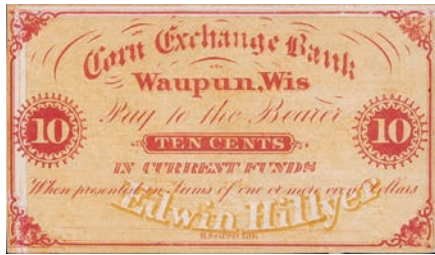 Corn Exchange Bank
Waupun, Wis
Pay to the Bearer
10
TEN CENTS
10
IN CURRENT FUNDS
When presented in sums of one or more even Dollars
Edwin Hillyer